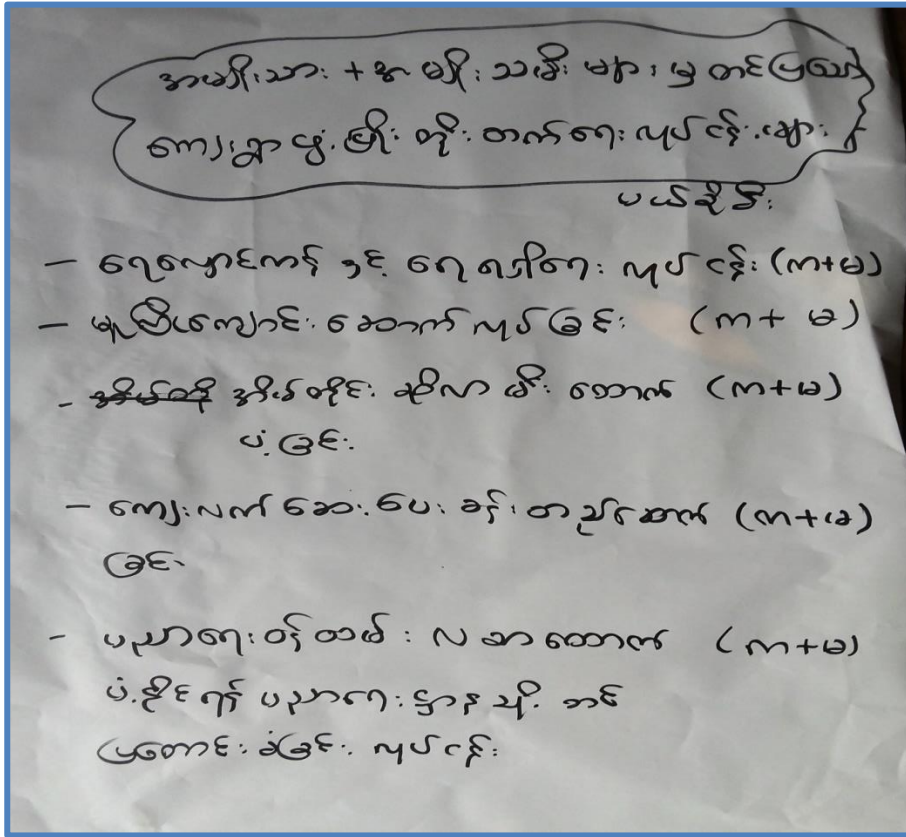 အမျိုးသား + အမျိုးသမီးများမှ တင်ပြသော
ကျေးရွာဖွံ့ဖြိုးတိုးတက်ရေးလုပ်ငန်းများ
ပယ်နိုဒိုး
- ရေလှောင်ကန် နှင့် ရေရရှိရေး လုပ်ငန်း (က+မ)
- မူကြိုကျောင်း ဆောက်လုပ်ခြင်း (က+မ)
- အိမ်တိုင်း ဆိုလာမီး ထောက် (က+မ)
ပံ့ခြင်း
- ကျေးလက်ဆေးပေးခန်း တည်ဆောက် (က+မ)
ခြင်း
- ပညာရေးဝန်ထမ်း လစာထောက် (က+မ)
ပံ့နိုင်ရန် ပညာရေးဌာနသို့ တင်
ပြတောင်းခံခြင်း လုပ်ငန်း